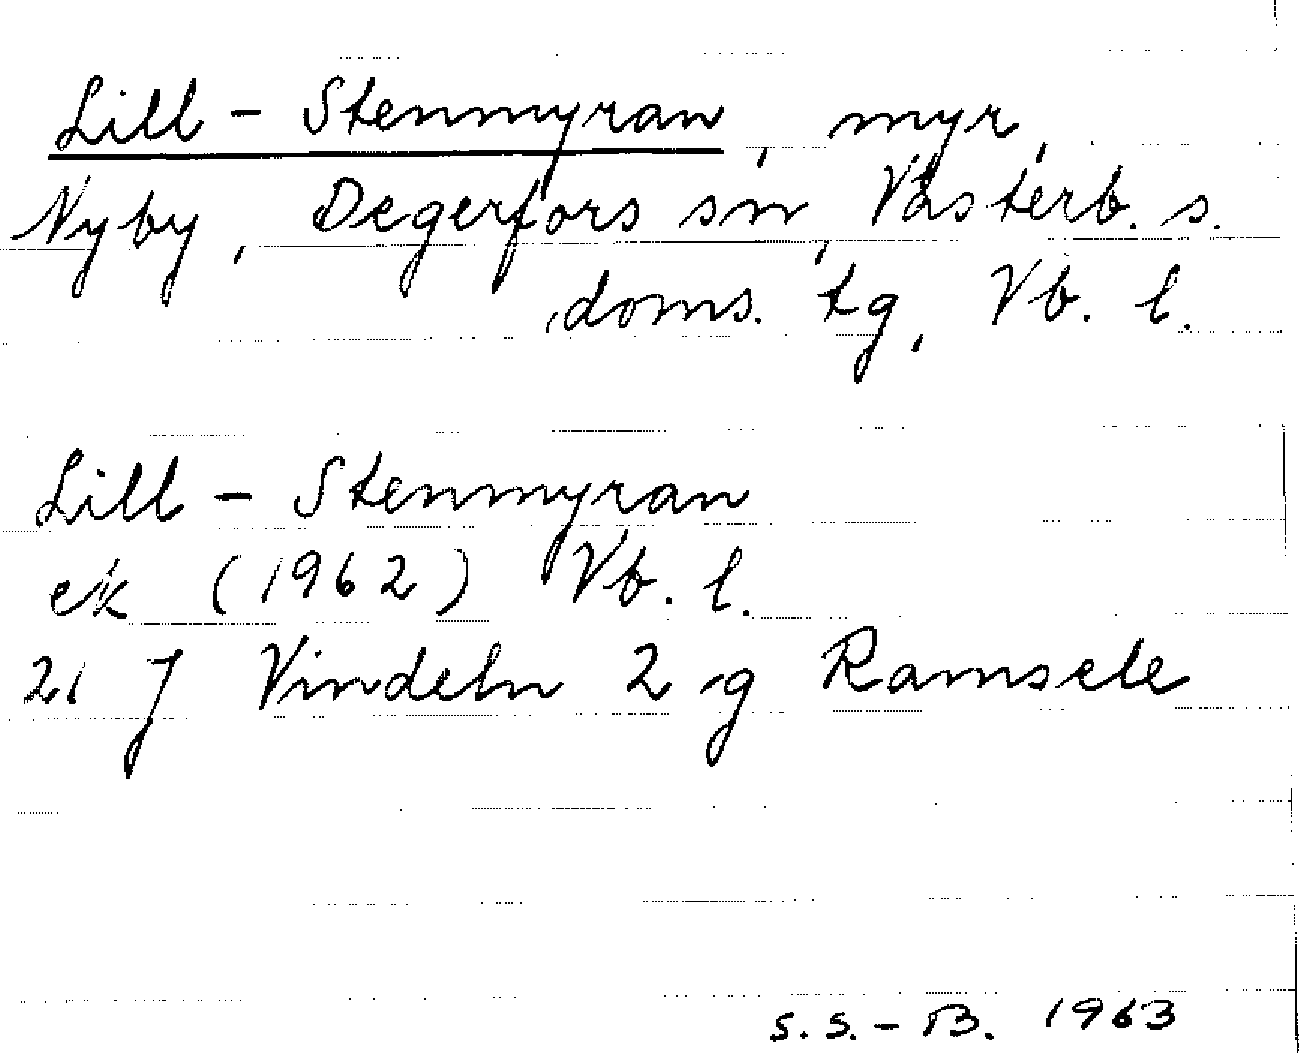 Lill-Stenmyran, myr,
Nyby, Degerfors sn, Västerb. s.
doms. tg, Vb. l.
Lill-Stenmyran
ek (1962) Vb. l.
21 J Vindeln 2 g Ramsele
S.S.-B. 1963